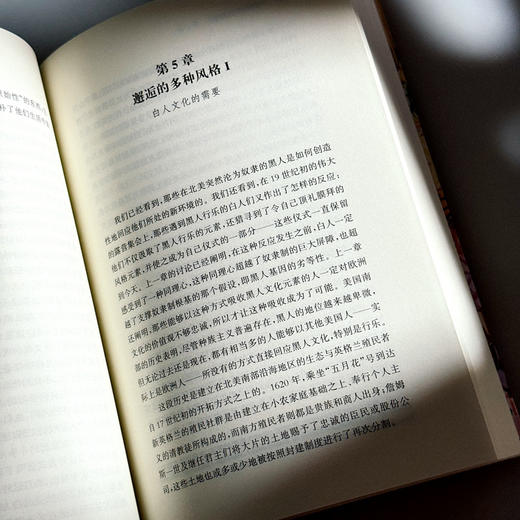 始性”的东西，
补了他们生活中
第 5 章
邂逅的多种风格 I
白人文化的需要
我们已经看到，那些在北美突然沦为奴隶的黑人是如何创造
性地回应他们所处的新环境的。我们还看到，在 19 世纪初的伟大
的露营集会上，那些遇到黑人行乐的白人们又作出了怎样的反应：
他们不仅汲取了黑人行乐的元素，还猎寻到了令自己顶礼膜拜的
风格元素，并使之成为自己仪式的一部分——这些仪式一直保留
到今天。上一章的讨论已经阐明，在这种反应发生之前，白人一定
感受到了一种同理心，这种同理心超越了奴隶制的巨大屏障，也超
越了支撑奴隶制根基的那个假设，即黑人基因的劣等性。上一章
还阐明，那些能够以这种方式吸收黑人文化元素的人一定对欧洲
文化的价值观不够忠诚，所以才让这种吸收成为了可能。美国南
部的历史表明，尽管种族主义普遍存在，黑人的地位越来越卑微，
但无论过去还是现在，都有相当多的人能够以其他美国人——实
际上是欧洲人——所没有的方式直接回应黑人文化，特别是行乐。
这段历史是建立在北美南部沿海地区的生态与英格兰殖民者
自 17 世纪初的开拓方式之上的。1620 年，乘坐“五月花”号到达
新英格兰的殖民社群是由建立在小农家庭基础之上、奉行个人主
义的清教徒所构成的，而南方殖民者则都是贵族和商人出身；詹姆
斯一世及继任君主们将大片的土地赐予了忠诚的臣民或股份公
司，这些土地也或多或少地被按照封建制度进行了再次分割。